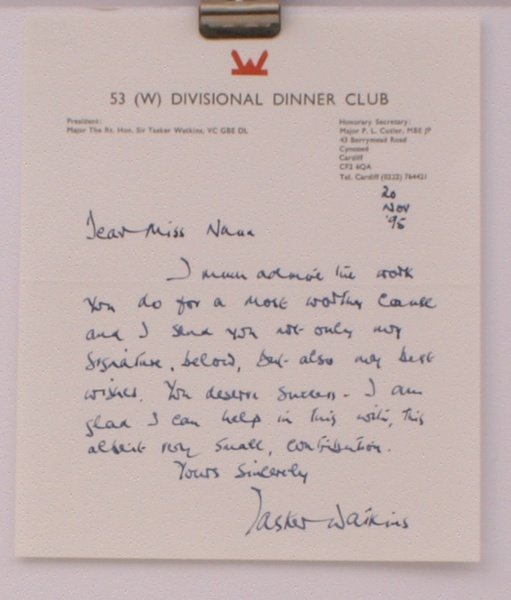 53 (W) DIVISIONAL DINNER CLUB
President:
Major The Rt. Hon. Sir Tasker Watkins, VC GBE DL
Honorary Secretary:
Major P. L. Cutler, MBE JP
43 Berrymead Road
Cyncoed
Cardiff
CF2 6QA
Tel. Cardiff (0222) 764421
20
Nov
'95
Dear Miss
I much admire the work
you do for a most worthy cause
and I send you not only my
signature, below, but also my best
wishes. You deserve success - I am
glad I can help in this with, this
albeit very small, contribution.
Yours Sincerely
Tasker Watkins